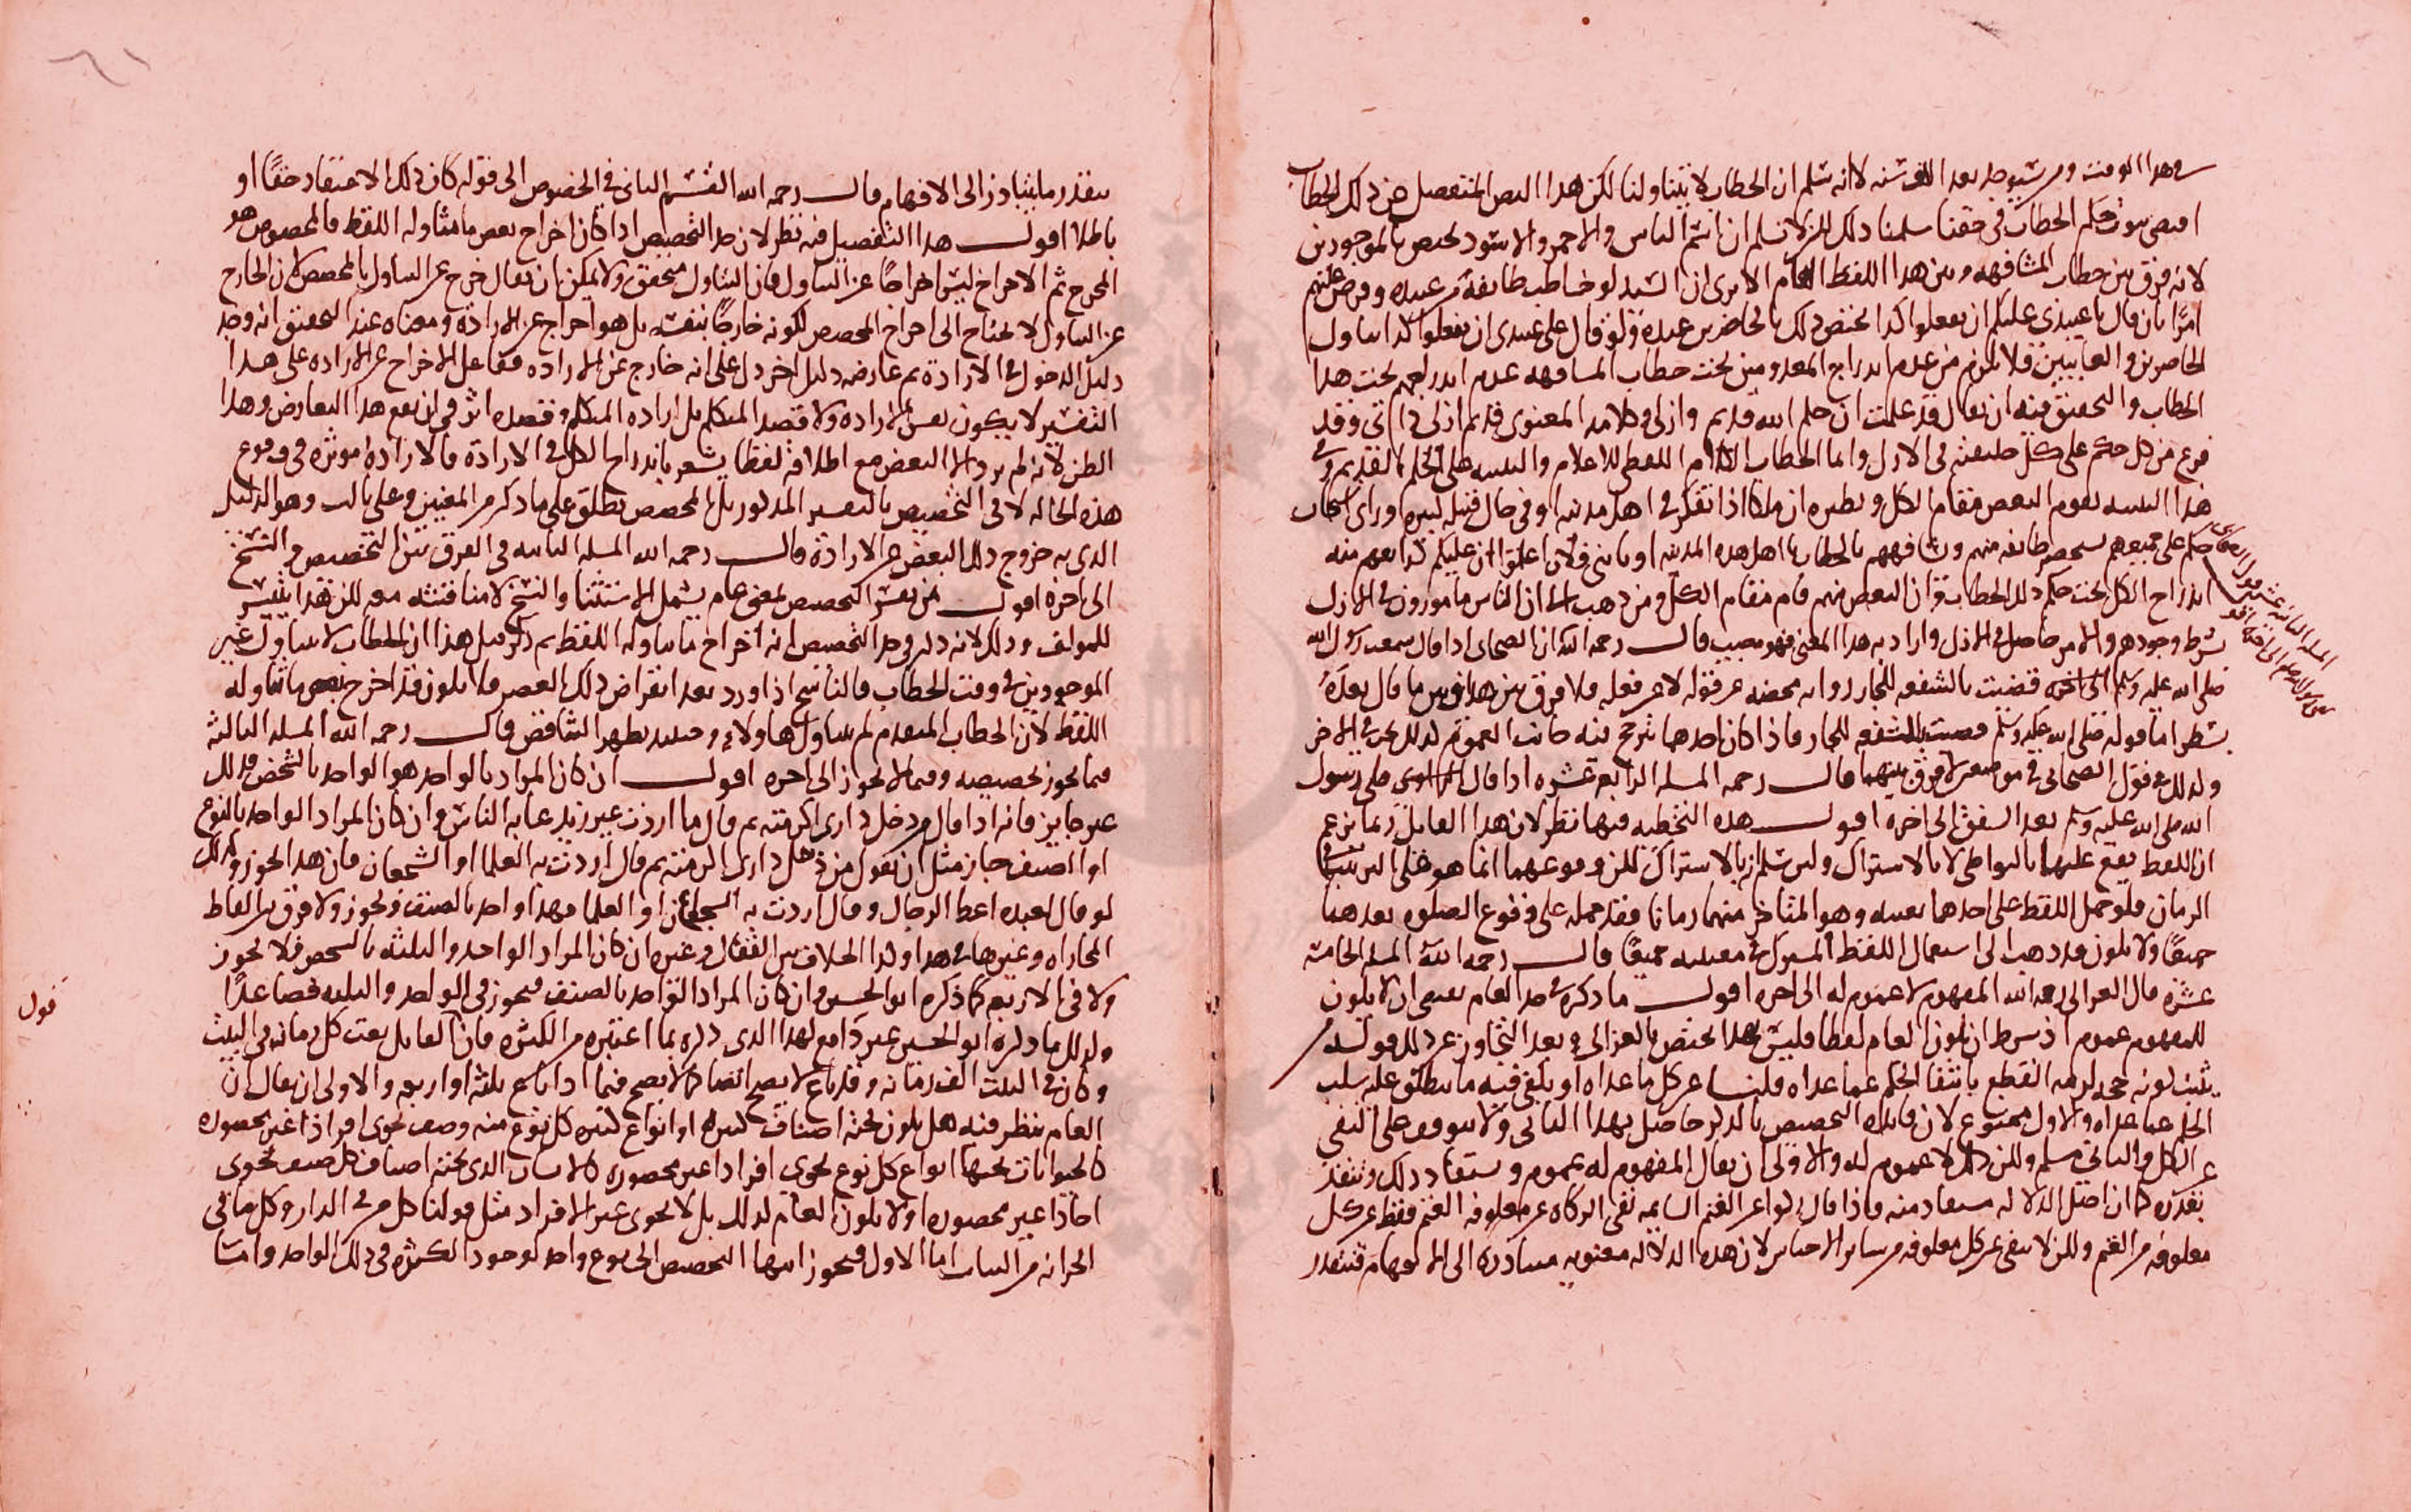 في هذا الوقت ومن سيوجد بعد الف سنه لانه سلم ان الخطاب لا يتناولنا لكن هذا النص المنفصل عن ذلك الخطاب
اقتضى ثبوت حكم الخطاب في حقنا سلمنا ذلك لكن لا نسلم ان انتم الناس والاحمر والاسود يختص بالموجودين
لانه فرق بين خطاب المشافهه وبين هذا اللفظ العام الا يرى ان السيد لو خاطب طايفة من عبيده وفرض عليهم
امرًا بان قال يا عبيدي عليكم ان تفعلوا كذا اختص ذلك بالحاضرين عنده ولو قال على عبيدى ان يفعلوا كذا تناول
الحاضرين والغايبين فلا يلزم من عدم اندراج المعدومين تحت خطاب المشافهه عدم اندراجهم تحت هذا
الخطاب والتحقيق فيه ان يقال قد علمت ان حكم الله قديم وازلى وكلامه المعنوى قديم ازلى وقد
فرغ من كل حكم على كل في الازل واما الخطاب اللفظى للاعلام والتنبيه على الحكم القديم وفي
هذا التنبيه يقوم البعض مقام الكل ونظيره ان ملكا اذا تفكر في اهل مدينه او في حال قبيله كبيره وراى
حكم على جميعهم طايفه منهم وشافههم بالخطاب يا اهل هذه المدينه او يا بنى فلان اعلموا ان عليكم كذا يفهم منه
اندراج الكل تحت حكم ذلك الخطاب وان البعض منهم قام مقام الكل ومن ذهب الى ان الناس مامورون في الازل
بشرط وجودهم والامر حاصل في الازل واراد به هذا المعنى فهو مصيب قال رحمه الله ان الصحابى اذا قال سمعت رسول الله
صلى الله عليه وسلم الى اخره قضيت بالشفعه للجار روايه محضه عن قوله لا عن فعله فلا فرق بين هذا وبين ما قال بعده
بسطر اما قوله صلى الله عليه وسلم قضيت بالشفعه للجار فاذا كان احدهما يترجح فيه جانب العموم كذلك في الاخر
وكذلك في قول الصحابى في موضعين لا فرق بينهما قال رحمه الله المسله الرابعه عشره اذا قال الراوى صلى رسول
الله صلى الله عليه وسلم بعد الشفق الى اخره اقول هذه التخطيه فيها نظر لان هذا القايل ربما يزعم
ان اللفظ يقع عليهما بالتواطى لا بالاشتراك ولين سلم انه بالاشتراك لكن وقوعهما انما هو على الترتيب في
الزمان فلو حمل اللفظ على احدهما بعينه وهو المتاخر منهما زمانا فقد حمله على وقوع الصلوه بعدهما
جميعًا ولا يكون قد ذهب الى استعمال اللفظ المشترك في معنييه جميعًا قال رحمه الله المسله الخامسه
عشره قال الغزالى رحمه الله المفهوم لا عموم له الى اخره اقول ما ذكره في حد العام يقتضى ان لا يكون
للمفهوم عموم اذ شرط ان يكون العام لفظا فليس هذا يختص بالغزالى وبعد التجاوز عن ذلك قوله
يثبت كونه حجه لزمه القطع بانتفا الحكم عما عداه قلنا عن كل ما عداه او يكفى فيه ما ينطلق عليه سلب
الحكم عما عداه والاول ممنوع لان فايده التخصيص بالذكر حاصل بهذا الثانى ولا يتوقف على النفى
عن الكل والثانى مسلم ولكن ذلك لا عموم له والاولى ان يقال المفهوم له عموم ويستفاد ذلك ويتقدر
بقدره كما ان اصل الدلاله مستفاد منه فاذا قال زكوا عن الغنم السايمه نفى الزكاه عن معلوفه الغنم فقط عن كل
معلوفه من الغنم ولكن لا ينفى عن كل معلوفه من ساير الاجناس لان هذه الدلاله معنويه متبادره الى الافهام فتتقدر
المسله الثانيه عشر قول الصحابى
الى اخره اقول
بقدر ما يتبادر الى الافهام قال رحمه الله القسم الثانى في الخصوص الى قوله كان ذلك الاعتقاد حقًا او
باطلا اقول هذا التفصيل فيه نظر لان حد التخصيص اذا كان اخراج بعض ما يتناوله اللفظ فالمخصوص هو
المخرج ثم الاخراج ليس اخراجًا عن التناول فان التناول متحقق ولا يمكن ان يقال خرج عن التناول بالمخصص لان الخارج
عن التناول لا يحتاج الى اخراج المخصص لكونه خارجًا بنفسه بل هو اخراج عن الاراده ومعناه عند التحقيق انه وجد
دليل الدخول في الارادة ثم عارضه دليل اخر دل على انه خارج عن الاراده فقاعل الاخراج عن الاراده على هذا
التفسير لا يكون نفس الاراده ولا قصد المتكلم بل اراده المتكلم وقصده اثر في ان يقع هذا التعارض وهذا
الظن لانه لم يرد الا البعض مع اطلاقه لفظا يشعر باندراج الكل في الارادة فالارادة موثره في وقوع
هذه الحاله لا في التخصيص بالتفسير المذكور بل المخصص ينطلق على ما ذكر من المعنيين وعلى ثالث وهو الدليل
الذى به خروج ذلك البعض عن الارادة قال رحمه الله المسله الثانيه في الفرق بين التخصيص والنسخ
الى اخره اقول من يفسر التخصيص لمعنى عام يشمل الاستثنا والنسخ لا مناقشه معه لكن هذا يتيسر
للمولف وذلك لانه ذكر في حد التخصيص انه اخراج ما يتناوله اللفظ ثم ذكر قبل هذا ان الخطاب لا يتناول غير
الموجودين في وقت الخطاب فالناسخ اذا ورد بعد انقراض ذلك العصر فلا يكون قد اخرج بعض ما تناوله
اللفظ لان الخطاب المتقدم لم يتناول هاولاء وحينيذ يظهر التناقض قال رحمه الله المسله الثالثه
فيما يجوز تخصيصه وفيما لا يجوز الى اخره اقول ان كان المراد بالواحد هو الواحد بالشخص فذلك
غير جايز فانه اذا قال من دخل دارى اكرمته ثم قال ما اردت غير زيد عابه الناس وان كان المراد الواحد بالنوع
او الصنف جاز مثل ان يقول من دخل دارى اكرمته ثم قال اردت به العلما او الشجعان فان هذا يجوز وكذلك
لو قال لعبده اعط الرجال وقال اردت به الشجعان او العلما فهذا واحد بالصنف ويجوز ولا فرق بين الفاظ
المجازاه وغيرها في هذا وكذا الخلاف بين القفال وغيره ان كان المراد الواحد والثلثه بالشخص فلا يجوز
ولا في الاربع كما ذكره ابو الحسين وان كان المراد الواحد بالصنف فيجوز في الواحد والثلثه فصاعدًا
وكذلك ما ذكره ابو الحسين غير دافع لهذا الذى ذكره بما اعتبره من الكثره فان القايل بعت كل رمانه في البيت
وكان في البيت الف رمانه وقد باع لا يصح ايضا كما لا يصح فيما اذا باع ثلثه او اربعه والاولى ان يقال ان
العام ينظر فيه هل يكون تحته اصناف كثيره او انواع كثيره كل نوع منه وصنف يحوى افرادا غير محصوره
كالحيوانات تحتها انواع كل نوع يحوى افرادا غير محصوره كالانسان الذى تحته اصناف كل صنف يحوى
احادًا غير محصوره او لا يكون العام كذلك بل لا يحوى غير الافراد مثل قولنا كل من في الدار وكل ما في
الخزانه من الثياب اما الاول فيجوز انتها التخصيص الى نوع واحد لوجود الكثره في ذلك الواحد واما